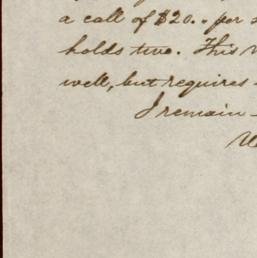 a call of $20.. per
holds two. This
well, but requires
I remain -